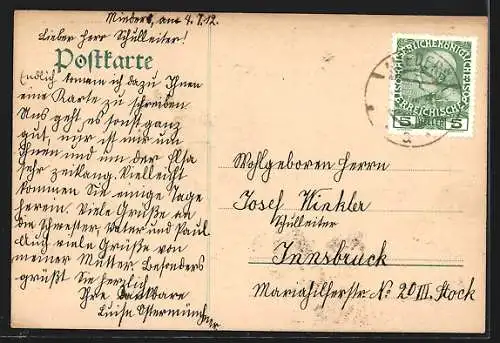 Mieders, am 4.7.12.
Lieber Herr Schulleiter!
Postkarte
Endlich komm ich dazu Ihnen
eine Karte zu schreiben
Uns geht es sonst ganz
gut, nur ist mir um
Ihnen und um der Elsa
sehr zeitlang. Vielleicht
kommen Sie einige Tage
herein. Viele Grüße an
die Schwester, Vater und Paul
viele Grüße von
meiner Mutter. Besonders
grüßt Sie herzlich
Ihre dankbare
Luise Ostermünchner
5 5
Wohlgeboren Herrn
Josef Winkler
Schulleiter
Innsbruck
Mariahilferstr. No 20 III. Stock